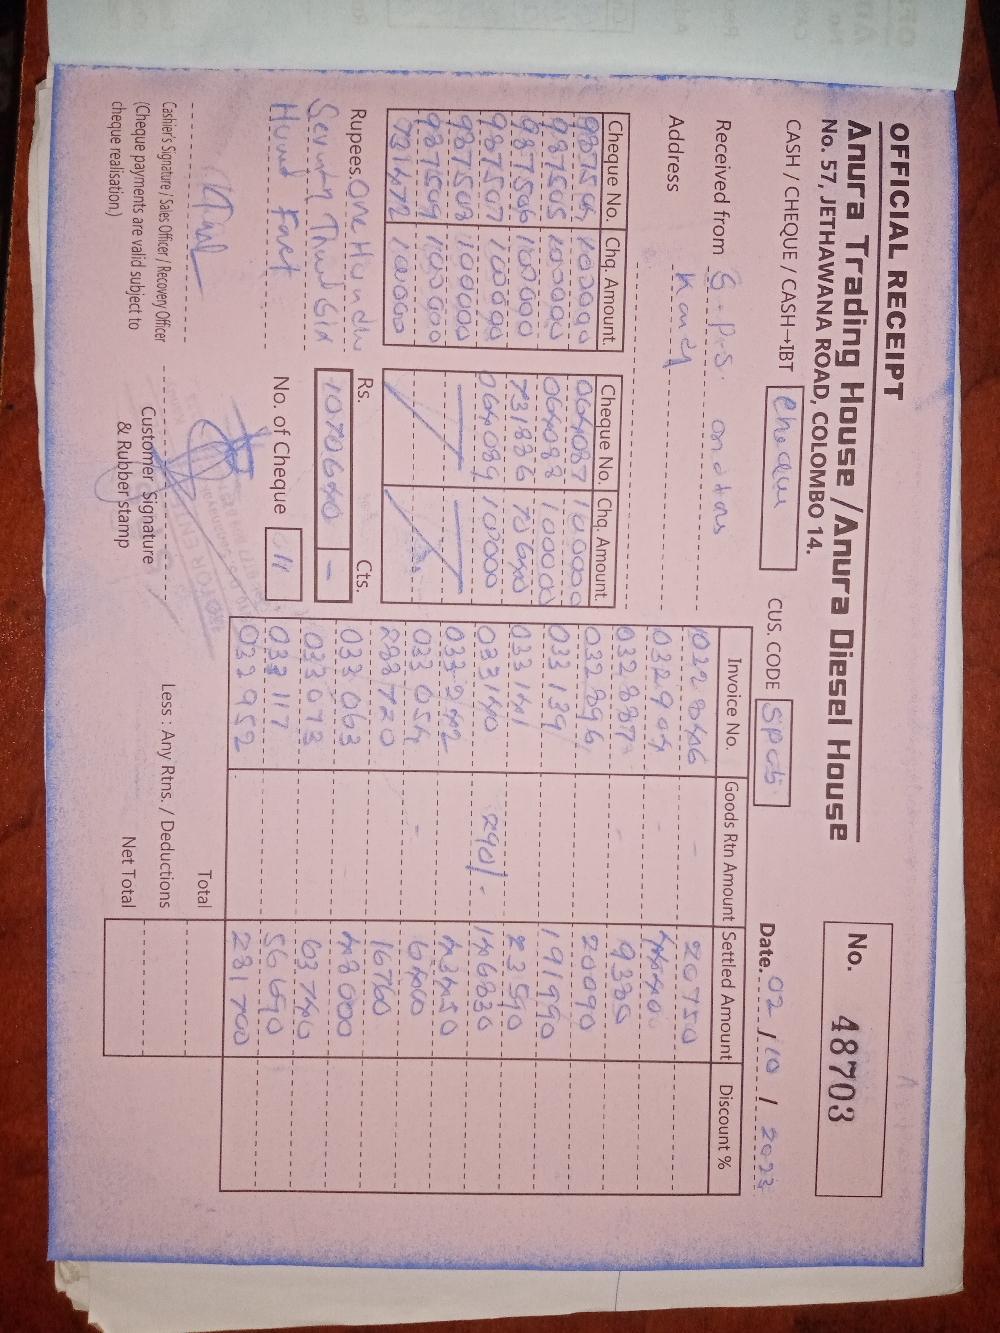 OFFICIAL RECEIPT
Anura Trading House / Anura Diesel House
No. 57, JETHAWANA ROAD, COLOMBO 14.
No. 48703
CASH / CHEQUE / CASH→IBT
CUS. CODE
Date. 02 / 10 / 2023
Received from S.P.S.
Address Kandy
Cheque No. Chq. Amount. Cheque No. Chq. Amount.
987504 100000 064087 100000
987505 100000 064088 100000
987506 100000 731886 70640
987507 100000 064089 100000
987508 100000
987509 100000
731472 100000
Invoice No. Goods Rtn Amount Settled Amount Discount %
1022846 - 20750
032904 - 44540
032887 - 9380
032896 20090
033139 191990
033141 23590
033140 290/- 146830
033242 43450
033054 - 6400
288720 16760
033063 48000
033073 63740
033117 56690
032952 281700
Total
Less : Any Rtns. / Deductions
Net Total
Rupees. One Hundred
Seventy Thousand Six
Hund Fort
Rs. Cts.
1070640 -
No. of Cheque 11
Cashier's Signature / Sales Officer / Recovery Officer
(Cheque payments are valid subject to
cheque realisation)
Customer Signature
& Rubber stamp